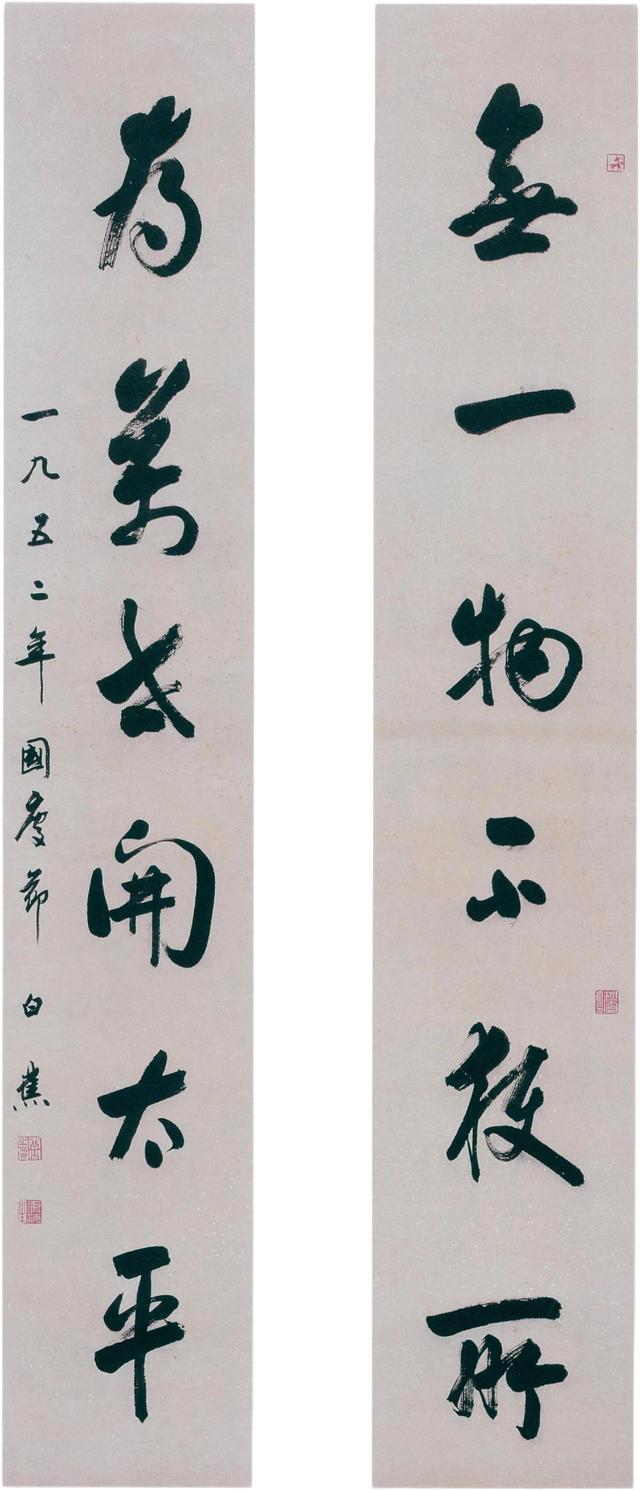 無一物不獲所
為萬世開太平
一九五二年國慶節 白蕉